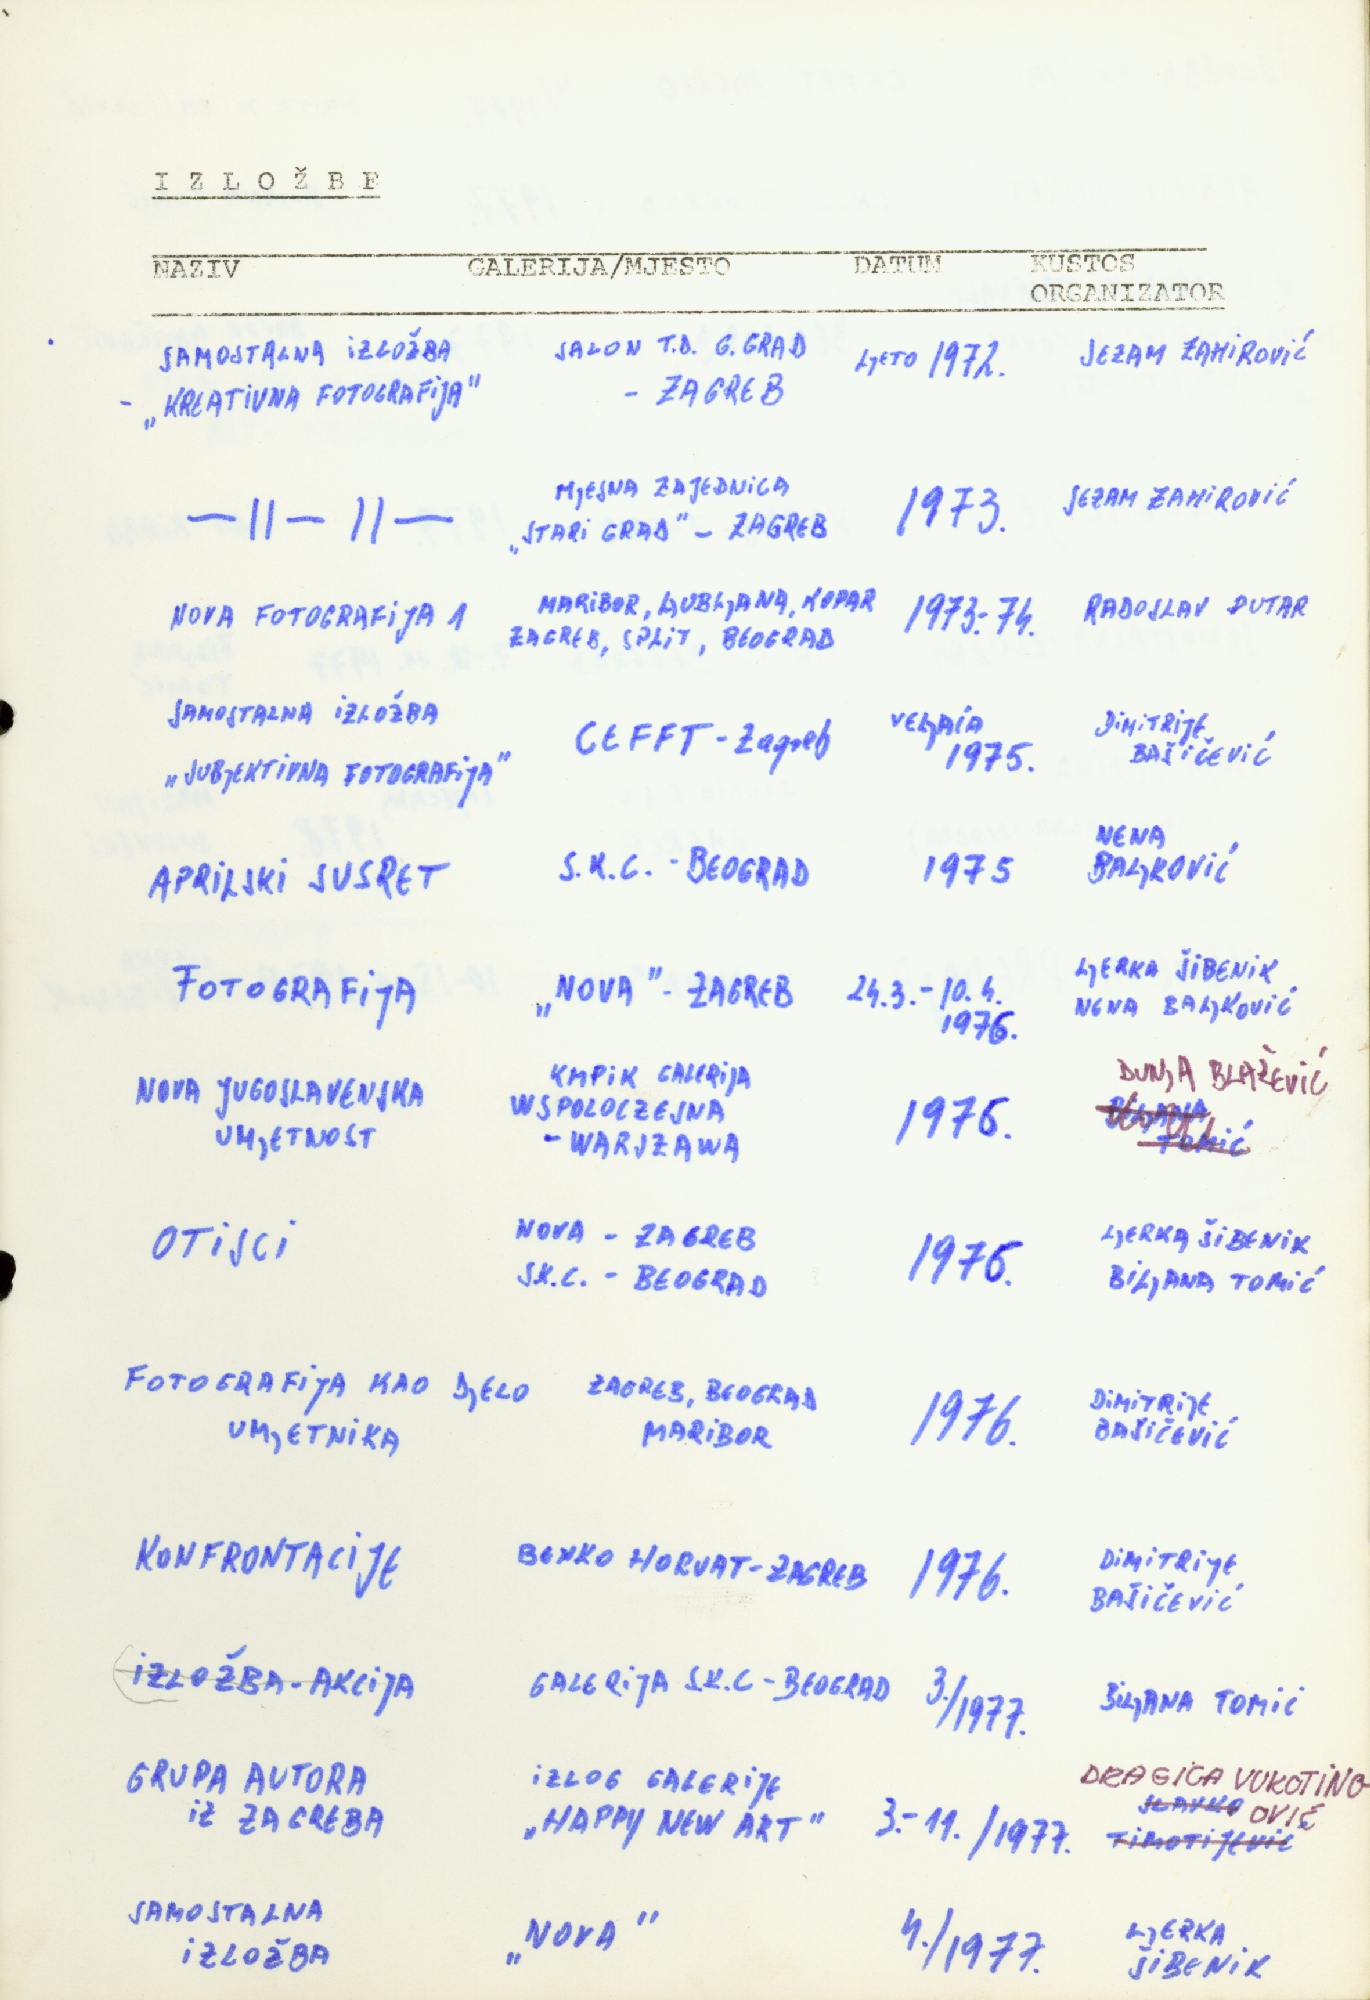 IZLOŽBE
NAZIV GALERIJA/MJESTO DATUM KUSTOS
ORGANIZATOR
SAMOSTALNA IZLOŽBA SALON T.D. G.GRAD LJETO 1972. SEZAM ZAMIROVIĆ
- „KREATIVNA FOTOGRAFIJA" - ZAGREB
—II— II— MJESNA ZAJEDNICA 1973. SEZAM ZAMIROVIĆ
„STARI GRAD" - ZAGREB
NOVA FOTOGRAFIJA 1 MARIBOR, LJUBLJANA, KOPAR 1973.-74. RADOSLAV PUTAR
ZAGREB, SPLIT, BEOGRAD
SAMOSTALNA IZLOŽBA CEFFT - Zagreb VELJAČA DIMITRIJE
„SUBJEKTIVNA FOTOGRAFIJA" 1975. BAŠIČEVIĆ
APRILSKI SUSRET S.K.C. - BEOGRAD 1975 NENA
BALJKOVIĆ
FOTOGRAFIJA „NOVA" - ZAGREB 24.3.-10.4. LJERKA ŠIBENIK
1976. NENA BALJKOVIĆ
NOVA JUGOSLAVENSKA KMPIK GALERIJA DUNJA BLAŽEVIĆ
UMJETNOST WSPOLOCZESNA 1976. BILJANA
- WARSZAWA TOMIĆ
OTISCI NOVA - ZAGREB 1976. LJERKA ŠIBENIK
S.K.C. - BEOGRAD BILJANA TOMIĆ
FOTOGRAFIJA KAO DJELO ZAGREB, BEOGRAD 1976. DIMITRIJE
UMJETNIKA MARIBOR BAŠIČEVIĆ
KONFRONTACIJE BENKO HORVAT - ZAGREB 1976. DIMITRIJE
BAŠIČEVIĆ
IZLOŽBA - AKCIJA GALERIJA S.K.C - BEOGRAD 3./1977. BILJANA TOMIĆ
GRUPA AUTORA IZLOG GALERIJE DRAGICA VUKOTINO
IZ ZAGREBA „HAPPY NEW ART" 3.-11./1977. SLAVKO OVIĆ
TIMOTIJEVIĆ
SAMOSTALNA „NOVA" 4./1977. LJERKA
IZLOŽBA ŠIBENIK